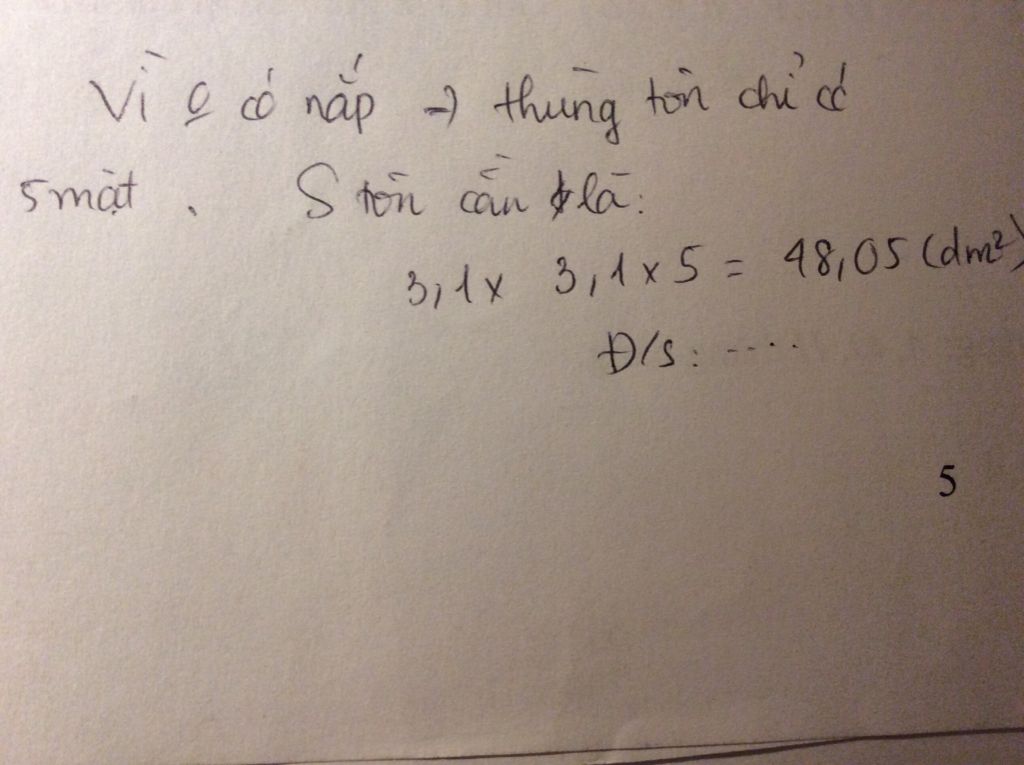 Vì o có nắp → thùng tôn chỉ có
5 mặt. S tôn cần là:
3,1 x 3,1 x 5 = 48,05 (dm²)
Đ/s: .....
5